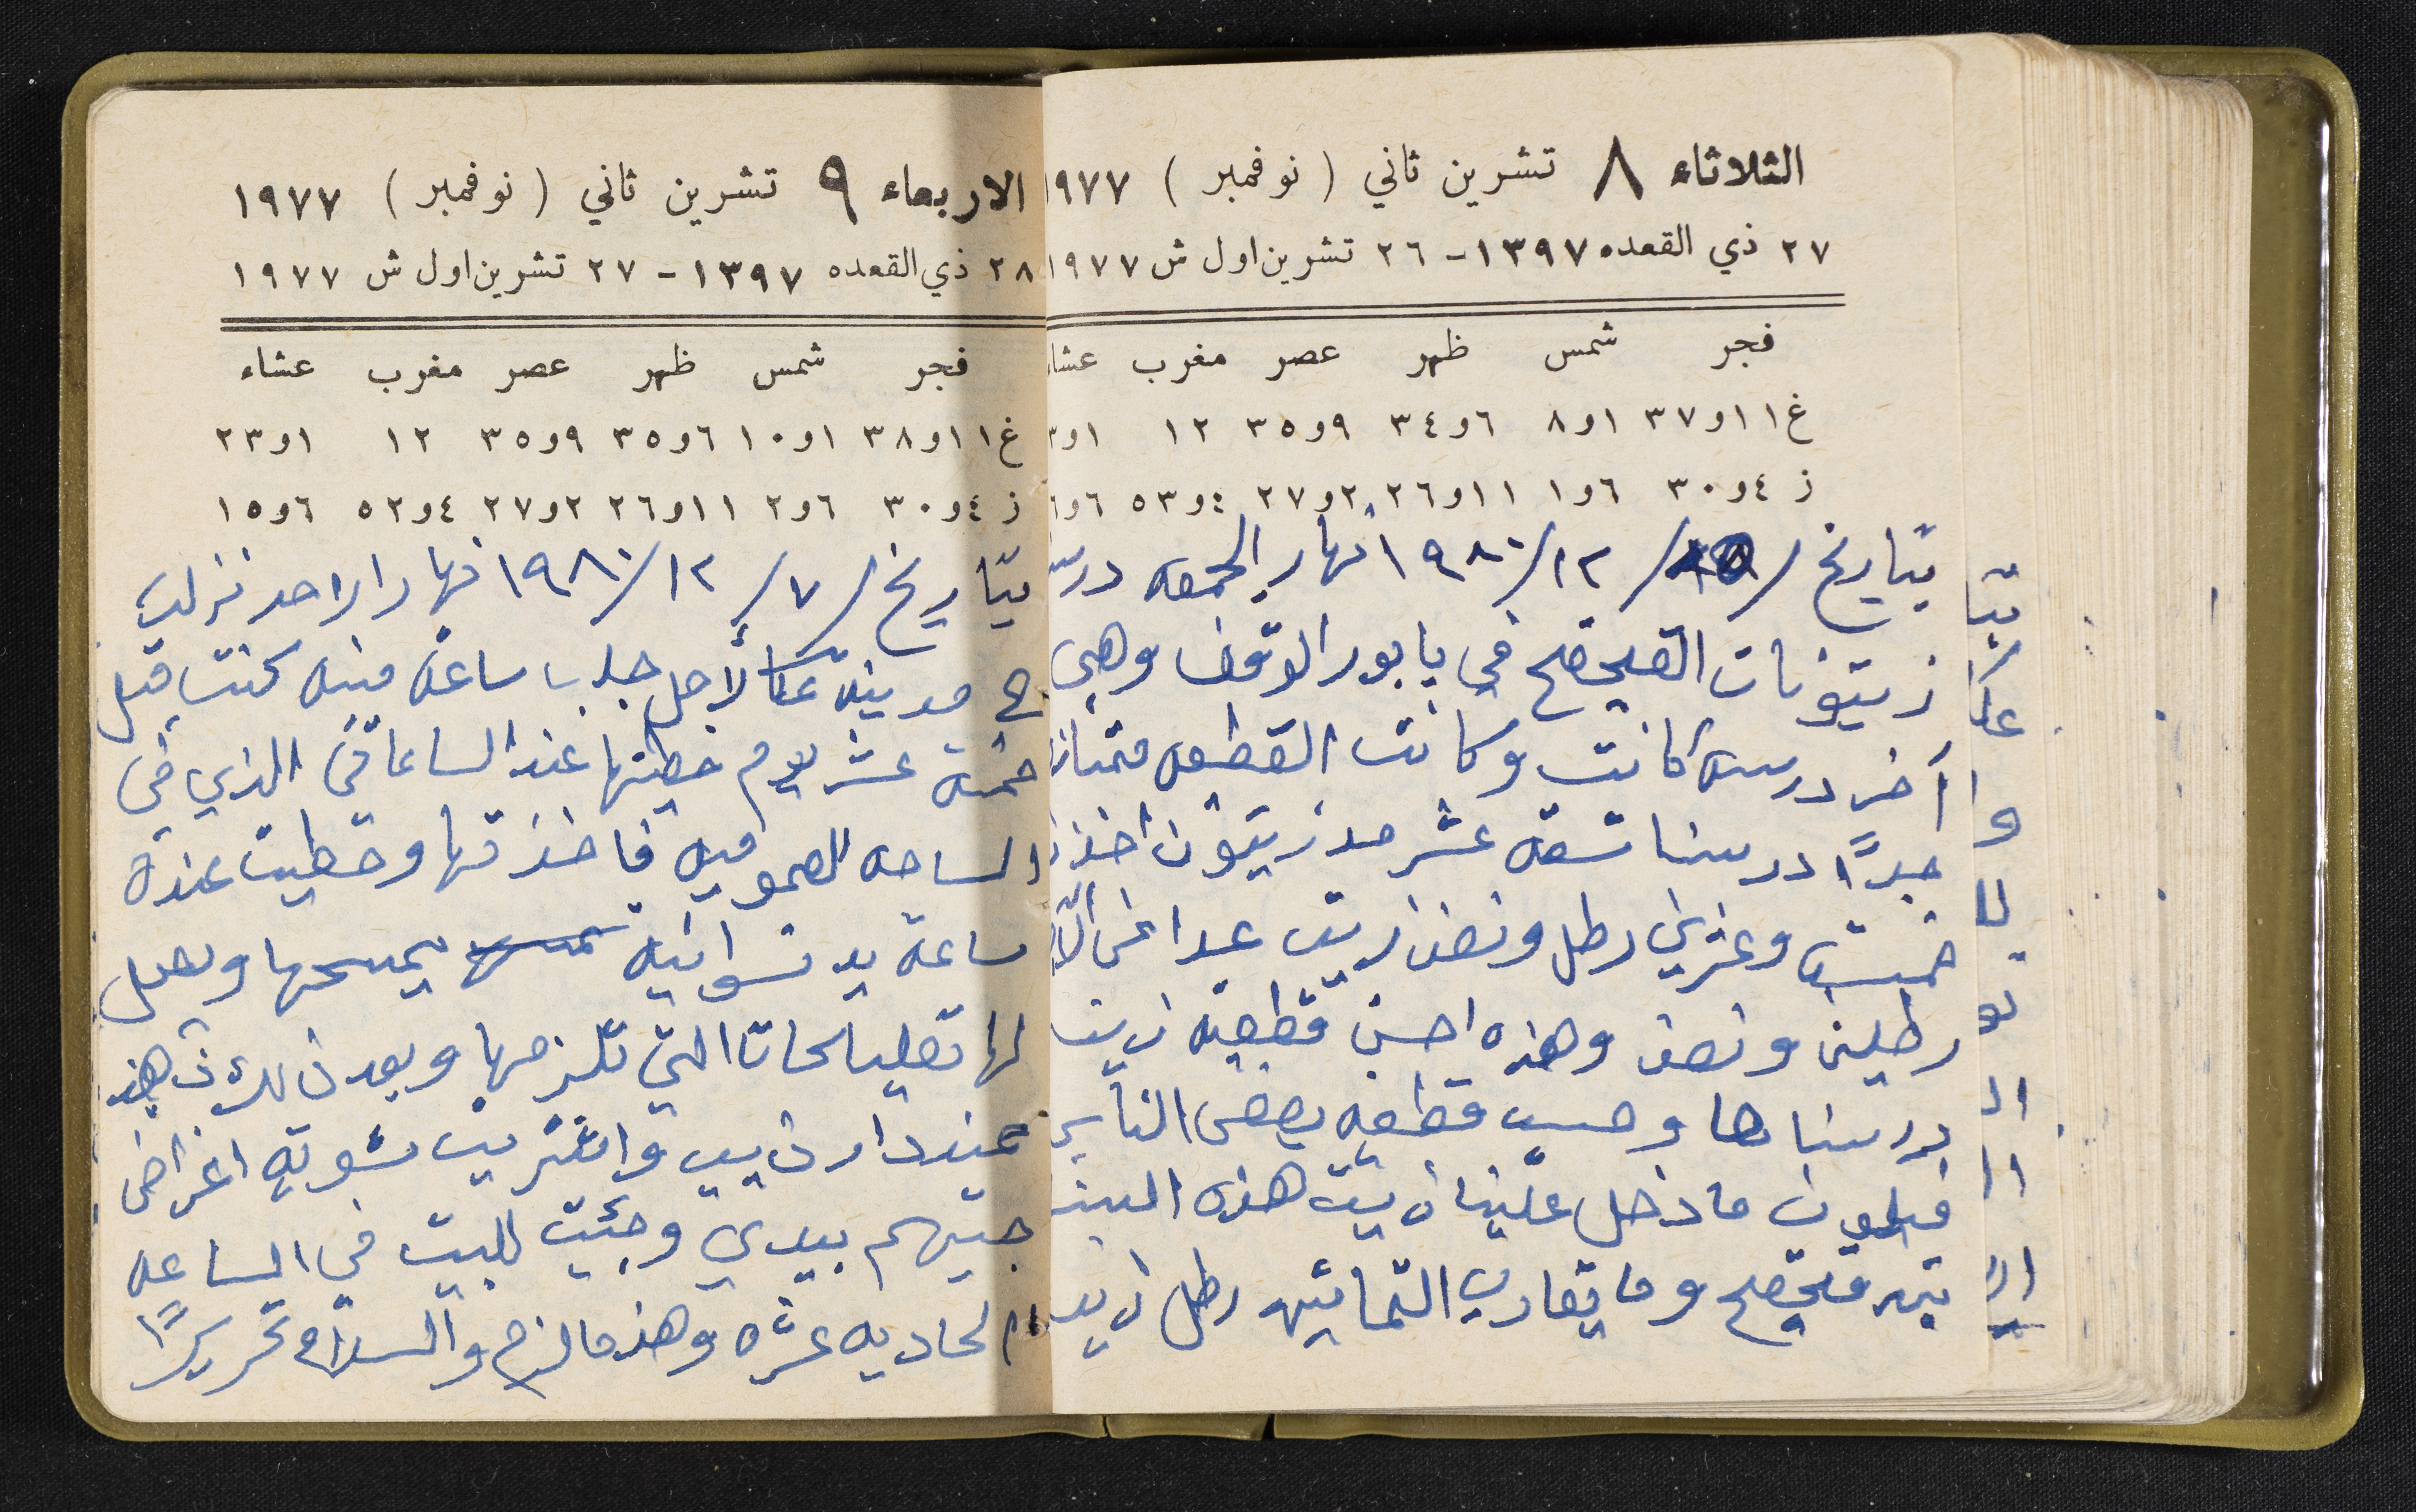 الثلاثاء ٨ تشرين ثاني (نوفمبر) ١٩٧٧
٢٧ ذي القعده ١٣٩٧ - ٢٦ تشرين اول ش ١٩٧٧
فجر شمس ظهر عصر مغرب عشا
غ ١١و٣٧ ١و٨ ٦و٣٤ ٩و٣٥ ١٢ ١و٢
ز ٤و٣٠ ٦و١ ١١و٢٦ ٢و٢٧ ٤و٥٣ ٦و١
بتاريخ / /١٩٨٠/١٢ نهار الجمعه درس
زيتونات القحقح في بابور الوقف وهي
آخر درسه كانت وكانت القطعه ممتاز
جدًا درسنا تسعة عشر مد زيتون اخذنا
خمسة وعشرين رطل ونصف زيت عدا عن
رطلين ونصف وهذه احسن قطعيه زيت
درسناها وحسب قطعيه بعض الناس
فيكون ما دخل علينا زيت هذه السنه
قحقح وما يقارب الثمانيه رطل زيت
الاربعاء ٩ تشرين ثاني (نوفمبر) ١٩٧٧
٢٨ ذي القعده ١٣٩٧ - ٢٧ تشرين اول ش ١٩٧٧
فجر شمس ظهر عصر مغرب عشاء
غ ١١و٣٨ ١و١٠ ٦و٣٥ ٩و٣٥ ١٢ ١و٢٣
ز ٤و٣٠ ٦و٢ ١١و٢٦ ٢و٢٧ ٤و٥٢ ٦و١٥
بتاريخ /٧/١٩٨٠/١٢ نهار الاحد نزلت
مدينة عكا لأجل جلب ساعة منبه كنت قبل
خمسة عشر يوم حطيتها عند الساعاتي الذي في
الساحه فاخذتها وحطيت عنده
ساعة يد نسوانيه يمسحها ويعمل
لها تصليحاتا التي تلزمها وبعد ذلك ذهبت
عند دار ذيب واشتريت شوية اغراض
جبتهم بيدي وجئت للبيت في الساعه
الحاديه عشره وهذ ما لزم والسلام تحريرًا
بتا
عكا
وا
لا
نو
ال
ال